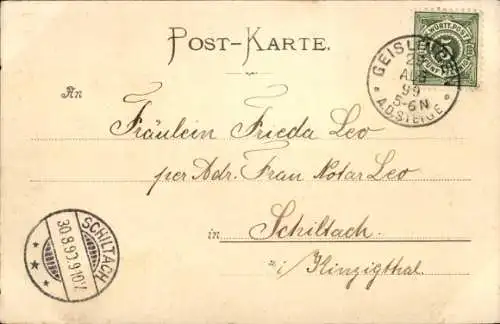 POST-KARTE.
K. WÜRTT. POST
5
GEISLINGEN
29
AUG
99
5-6 N
A.D.STEIGE
An
Fräulein Frieda Leo
per Adr. Frau Notar Leo
in Schiltach.
i/ Kinzigthal.
SCHILTACH
30.8.99.9-10V.